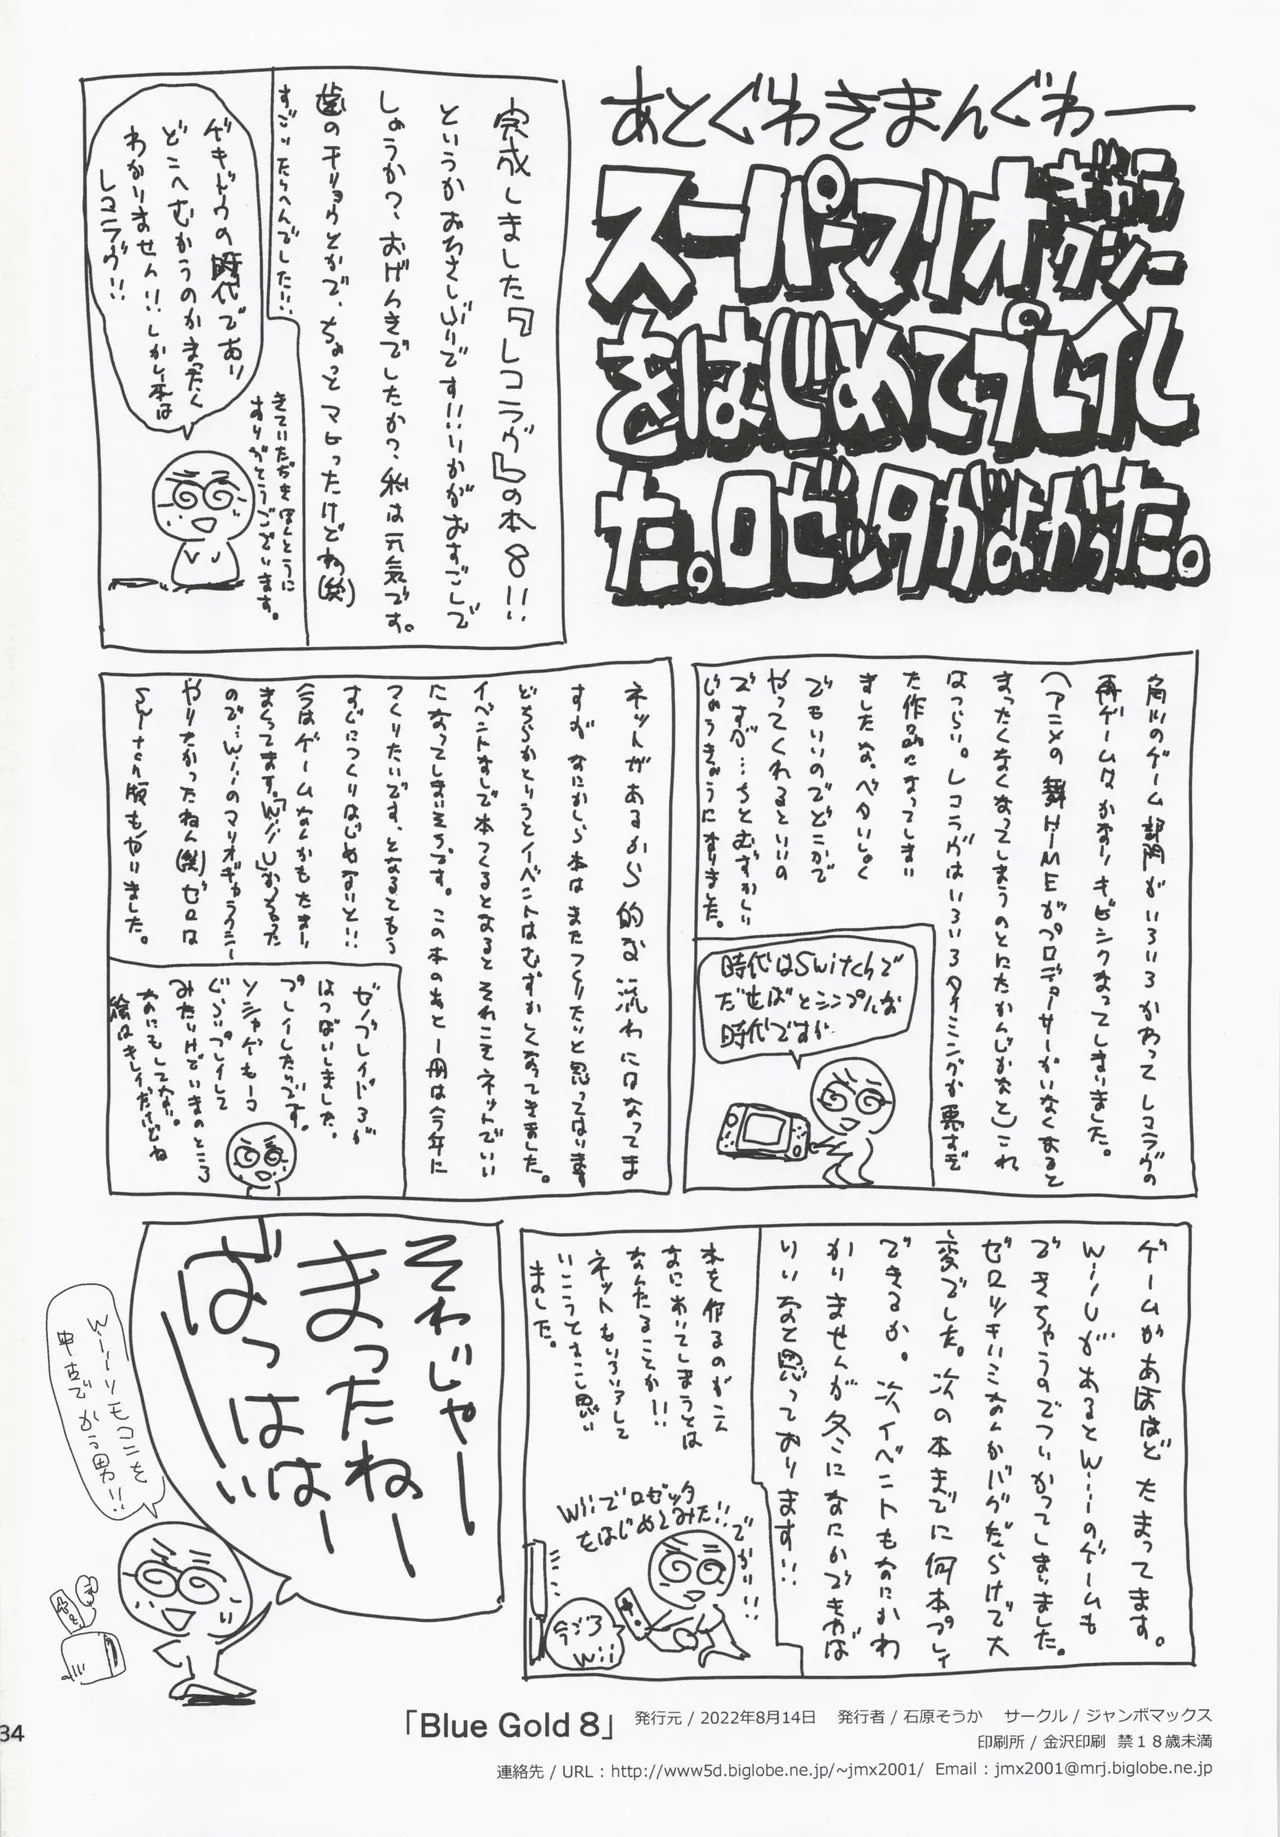 あとぐわきまんぐわー
スーパーマリオギャラクシー
をはじめてプレイし
た。ロゼッタがよかった。
完成しました『レコラヴ』の本8!!
というかおひさしぶりです!!いかがおすごしで
しょうか?、おげんきでしたか?私は元気です。
歯のチリョウとかで、ちょっとマヒったけどね(笑)
すごいたいへんでした!!
ゲキドウの時代であり
どこへむかうのかまったく
わかりません!!しかし本は
レコラヴ!!
きていただきほんとうに
ありがとうございます。
角川のゲーム部門がいろいろかわってレコラヴの
再ゲームはかなりキビシクなってしまいました。
(アニメの舞HiMEがプロデューサーがいなくなると
まったくなくなってしまうのとにたかんじかなと)これ
はつらい。レコラヴはいろいろタイミングが悪すぎ
た作品になってしまい
ましたな。ベタいしく
でもいいのでどこかで
やってくれるといいの
ですが…ちとむずかしい
じょうきょうになりました。
時代はSwitchで
だせばとシンプルな
時代ですが
ネットがあるから的な流れにはなってま
すが なにかしら本はまたつくりたいと思ってはいます
どちらかというとイベントはむずかしくなってきました。
イベントなしで本つくるとなるとそれこそネットでいい
になってしまいそうです。この本のあと一冊は今年に
つくりたいです、となるともう
すぐにつくりはじめないと!!
今はゲームなんかもたまり
まくってます。「Wii」しかなかった
ので…Wiiのマリオギャラクシー
やりたかったねん(笑)ゼロは
Switch版もやりました。
ゼノブレイド3が
はつばいしました。
プレイしたいです。
ソシャゲも一コ
ぐらいプレイして
みたいけどいまのところ
なにもしてない。
絵はキレイだけどね
ゲームがあほほどたまってます。
WiiUがあるとWiiのゲームも
できちゃうのでついかってしまいました。
ゼロリキイミなんかバグだらけで大
変でした。次の本までに何本プレイ
できるか。次イベントもなにかわ
かりませんが冬になにかできれば
いいなと思っております!!
本を作るのがこん
なにあいてしまうとは
なんたることか!!
ネットもいろいろして
いこうとすこし思い
ました。
Wiiでロゼッタ
をはじめてみた!!
でかい!!
今ごろ
Wii
それじゃー
まったねー
ばっはは~い
Wiiリモコンを
中古でかう男!!
34
「Blue Gold 8」
発行元 / 2022年8月14日　発行者 / 石原そうか　サークル / ジャンボマックス
印刷所 / 金沢印刷　禁18歳未満
連絡先 / URL : http://www5d.biglobe.ne.jp/~jmx2001/ Email : jmx2001@mrj.biglobe.ne.jp